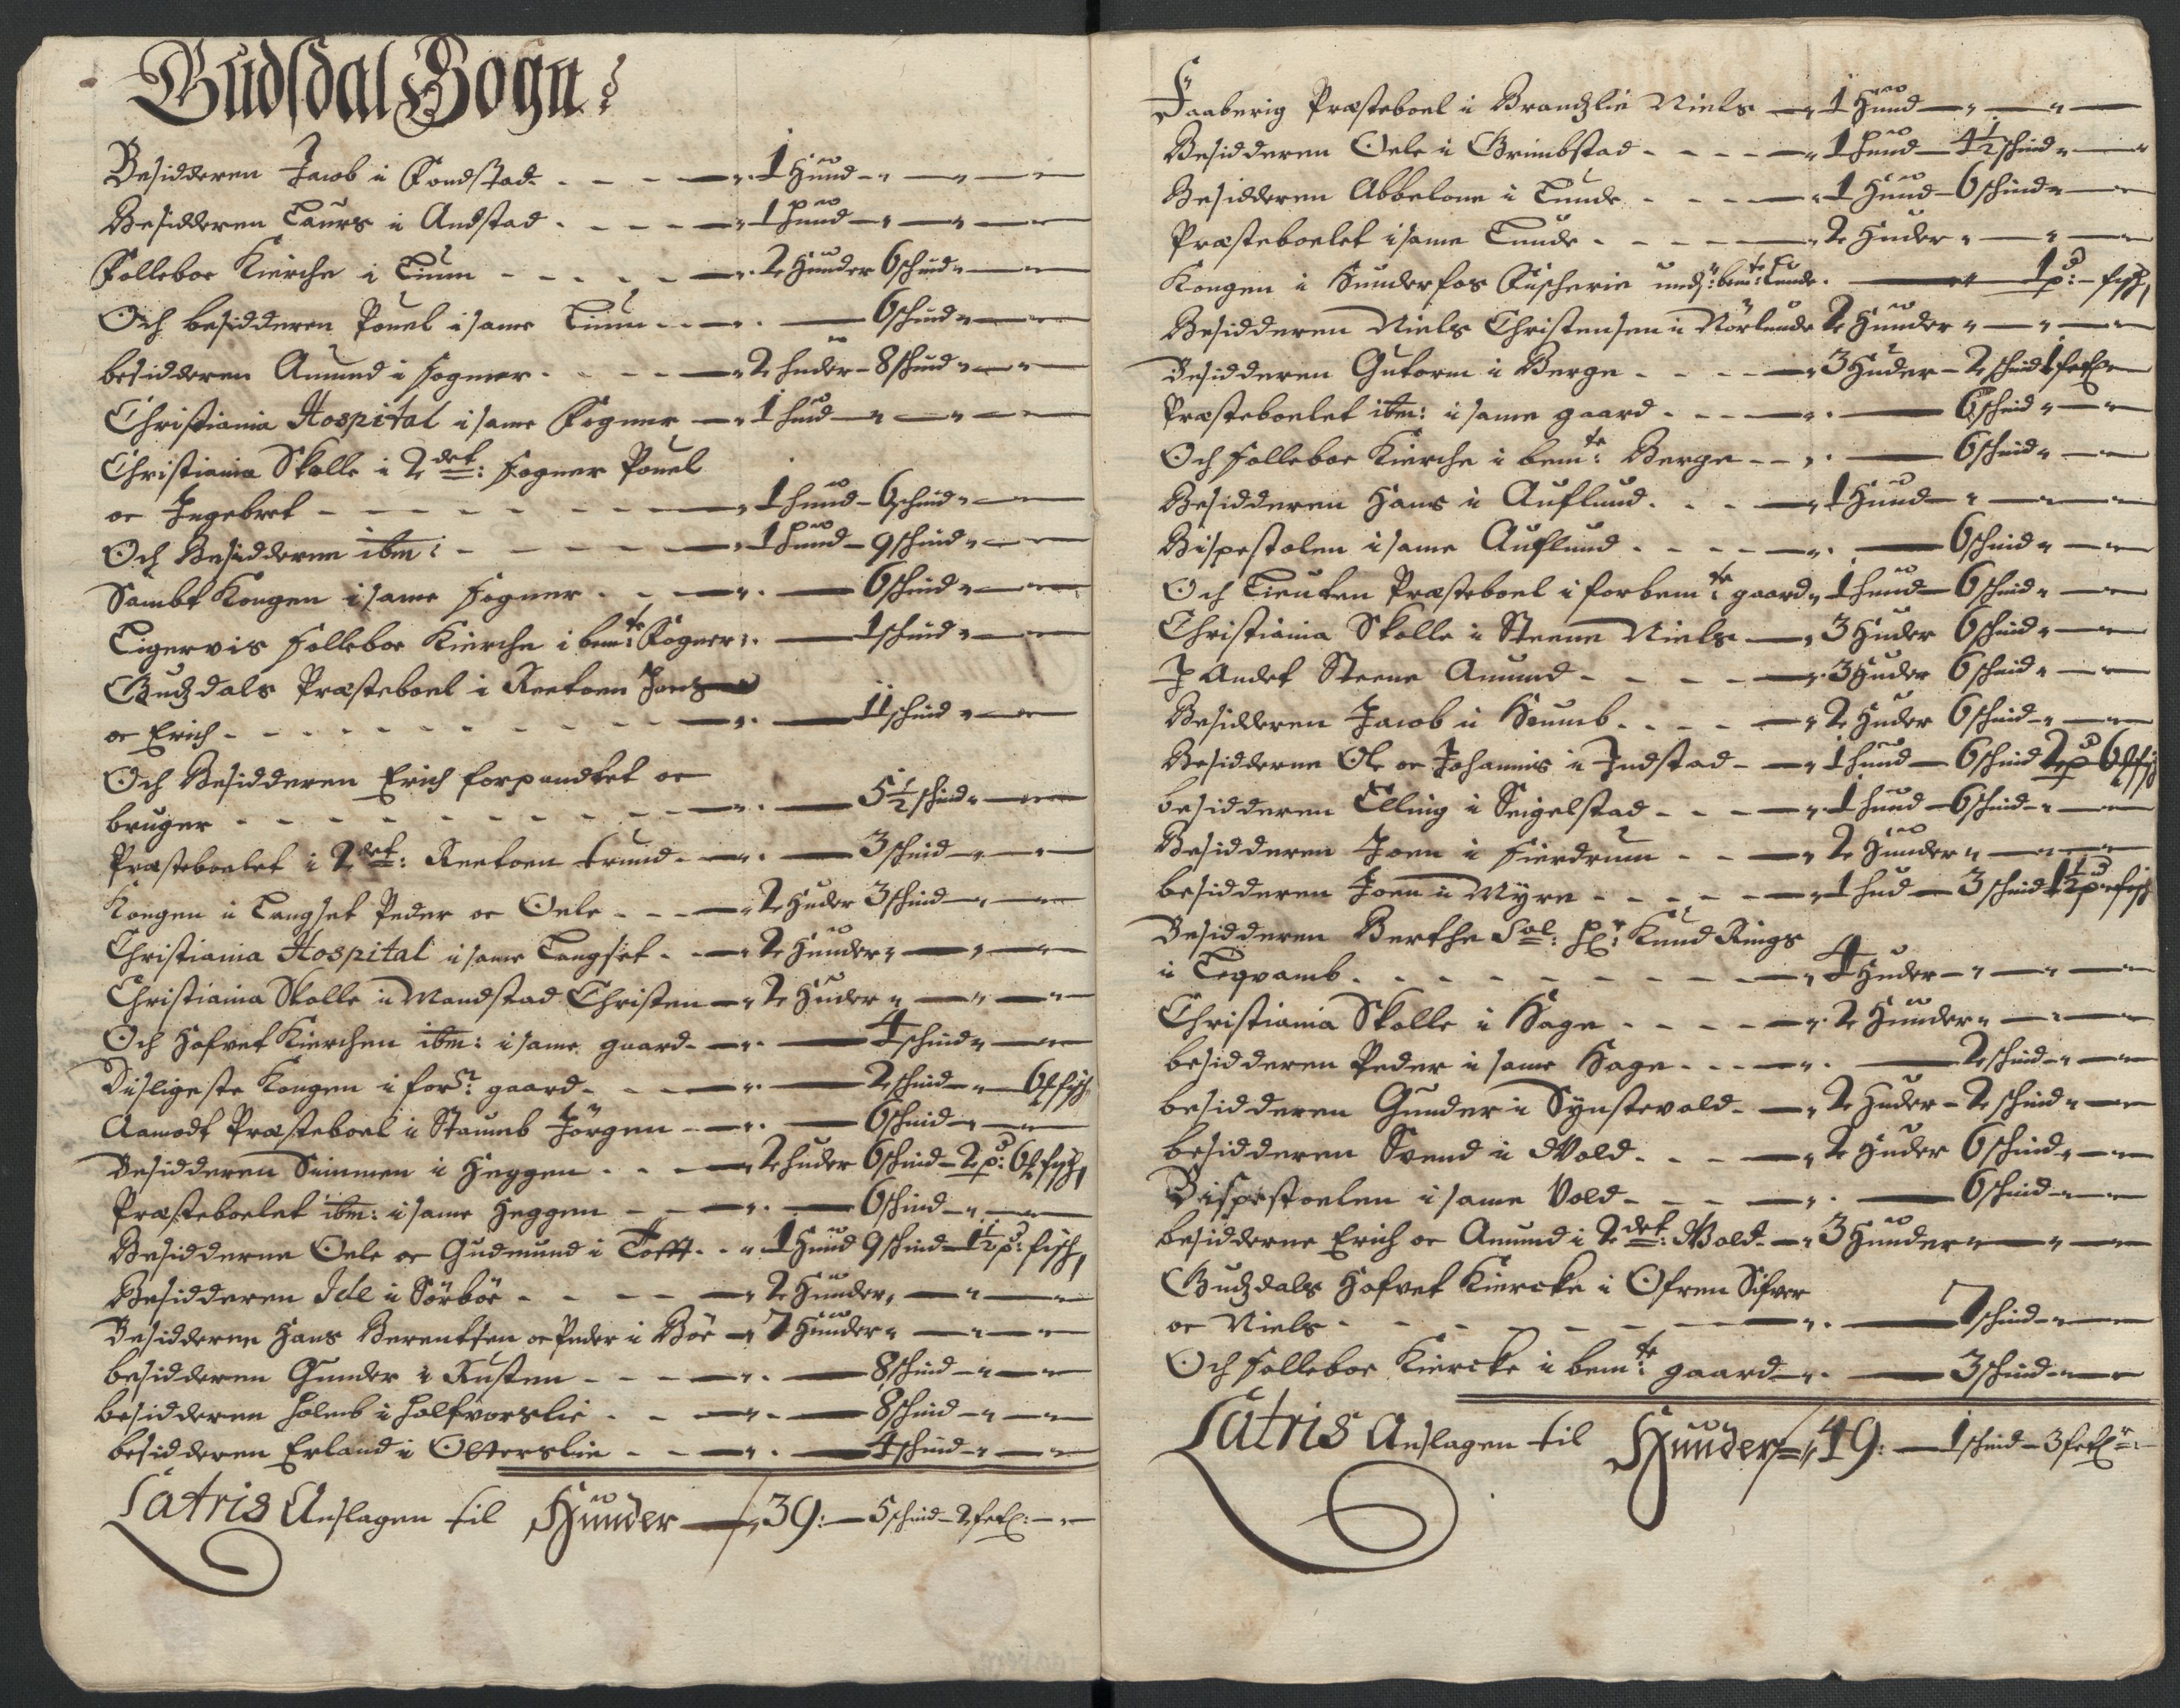 Gudsdal Sogn:
Besidderen Jacob i Fondstad - - - 1 Hund - - -
Besidderen Laurs i Andstad - - - - 1 hund - - -
Folleboe Kirche i Lium - - - - 2 Hunder 6 schind -
Och besidderen Pouel i same Lium - - - 6 schind -
besidderen Amund i Fogner - - - - 2 huder - 8 schind -
Christiania Hospital i same Fogner - 1 hud - - -
Christiania Skolle i 2det: Fogner Pouel
oc Ingebret - - - - - 1 hund - 6 schind -
Och Besidderne ibm: - - - - 1 hund - 9 schind -
Sambt Kongen i same Fogner - - - 6 schind -
Ligervis Folleboe Kirche i bemte: Fogner - 1 schind -
Gudzdals Præsteboel i Reetoen
oc Erich - - - - - - 11 schind -
Och Besidderen Erich forpandtet oc
bruger - - - - - - 5½ schind -
Præsteboelet i 2det: Reetoen trund - - 3 schind -
Kongen i Langset Peder oc Oele - - - 2 Huder 3 schind -
Christiania Hospital i same Langset - - 2 Hunder - - -
Christiania Skolle i Mandstad Christen - 2 Huder - - -
Och Hofvet Kierchen ibm: i same gaard - - 4 schind -
Disligeste Kongen i forsn: gaard - - - 2 schind - 6 fisch
Aamodt Præsteboel i Staumb Jörgen - - 6 schind -
Besidderen Simmen i Heggen - - - 2 huder 6 schind - 2 pd: 6 fisch
Præsteboelet ibm: i same Heggen - - - 6 schind -
Besidderne Oele oc Gudmund i Tofft - - 1 Hund 9 schind - 1½ pd: fisch
Besidderen Ide i Sörböe - - - - 2 Hunder - - -
Besidderne Hans Berentsen oc Peder i Böe - 7 Hunder - - -
besidderen Gunder i Rusten - - - - 8 schind -
besidderen Holmb i Holfvorslie - - - 8 schind -
besidderen Erland i Otterslie - - - 4 schind -
Latris Anslagen til Hunder - 39: - 5 schind - 2 - -
Faaberig Præsteboel i Brandzlie Niels - 1 Hund - - -
Besidderen Oele i Grimbstad - - - - 1 hund - 4½ schind -
Besidderen Abbelone i Lunde - - - - 1 Hund - 6 schind -
Præsteboelet i same Lunde - - - - 2 Huder - - -
Kongen i Hunderfos Fischerie bemte: Lunde - - 1 pd: - fisch
Besidderen Niels Christensen i Nörlunde 2 Hunder - - -
Besidderen Gutorm i Berge - - - - 3 Huder - 2 schind 1
Præsteboelet ibm: i same gaard - - - 6 schind -
Och Folleboe Kierche i bemte: Berge - - 6 schind -
Besidderen Hans i Auflund - - - - 1 Hund - - -
Bispestolen i same Auflund - - - - 6 schind -
Och Lieuten Præsteboel i forbemte: gaard - 1 hund - 6 schind -
Christiania Skolle i Steene Niels - 3 Huder 6 schind -
I Andet Steene Amund - - - - 3 Huder 6 schind -
Besidderen Jacob i Houmb - - - - 2 Huder 6 schind -
Besidderne Ole oc Johannis i Indstad - - 1 hund - 6 schind 2 pd 6 fisch
besidderen Elling i Seigelstad - - - 1 hund - 6 schind -
Besidderen Joen i Fierdrum - - - - 2 Hunder - - -
besidderen Joen i Myre - - - - 1 hud - 3 schind 1½ pd fisch
Besidderen Berthe Sal: Hr: Knud Rings
i Legvamb - - - - - - 4 Huder - - -
Christiania Skolle i Hage - - - - 2 Hunder - - -
besidderen Peder i same Hage - - - 2 schind -
besidderen Gunder i Synstevold - - 2 Huder - 2 schind -
besidderen Svend i Wold - - - - 2 Huder 6 schind -
Bispestoelen i same Vold - - - - 6 schind -
besidderne Erich oc Amund i 2det: Wold - 3 Hunder - - -
Gudzdals Hofvet Kiercke i Ofren Sifver
oc Niels - - - - - - 7 schind -
Och Folleboe Kiercke i bemte: gaard - - 3 schind -
Latris Anslagen til Hunder 49: - 1 schind - 3